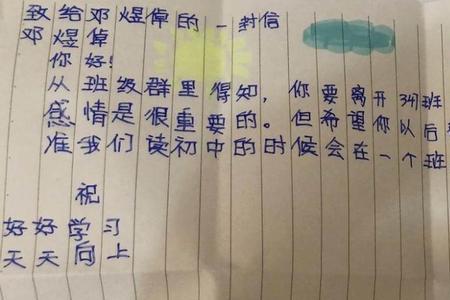 致给邓煜倬的一封信
邓煜倬
你好!
从班级群里得知，你要离开341班
感情是很重要的。但希望你以后
准我们读初中的时候会在一个班
祝
好好学习
天天向上